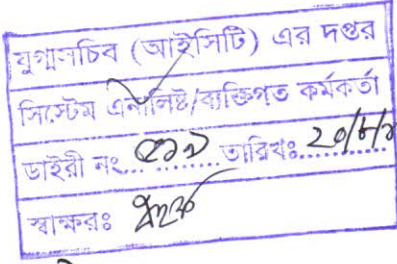 যুগ্মসচিব (আইসিটি) এর দপ্তর
সিস্টেম এনালিষ্ট/ব্যক্তিগত কর্মকর্তা
ডাইরী নং... ........তারিখঃ...........
স্বাক্ষরঃ